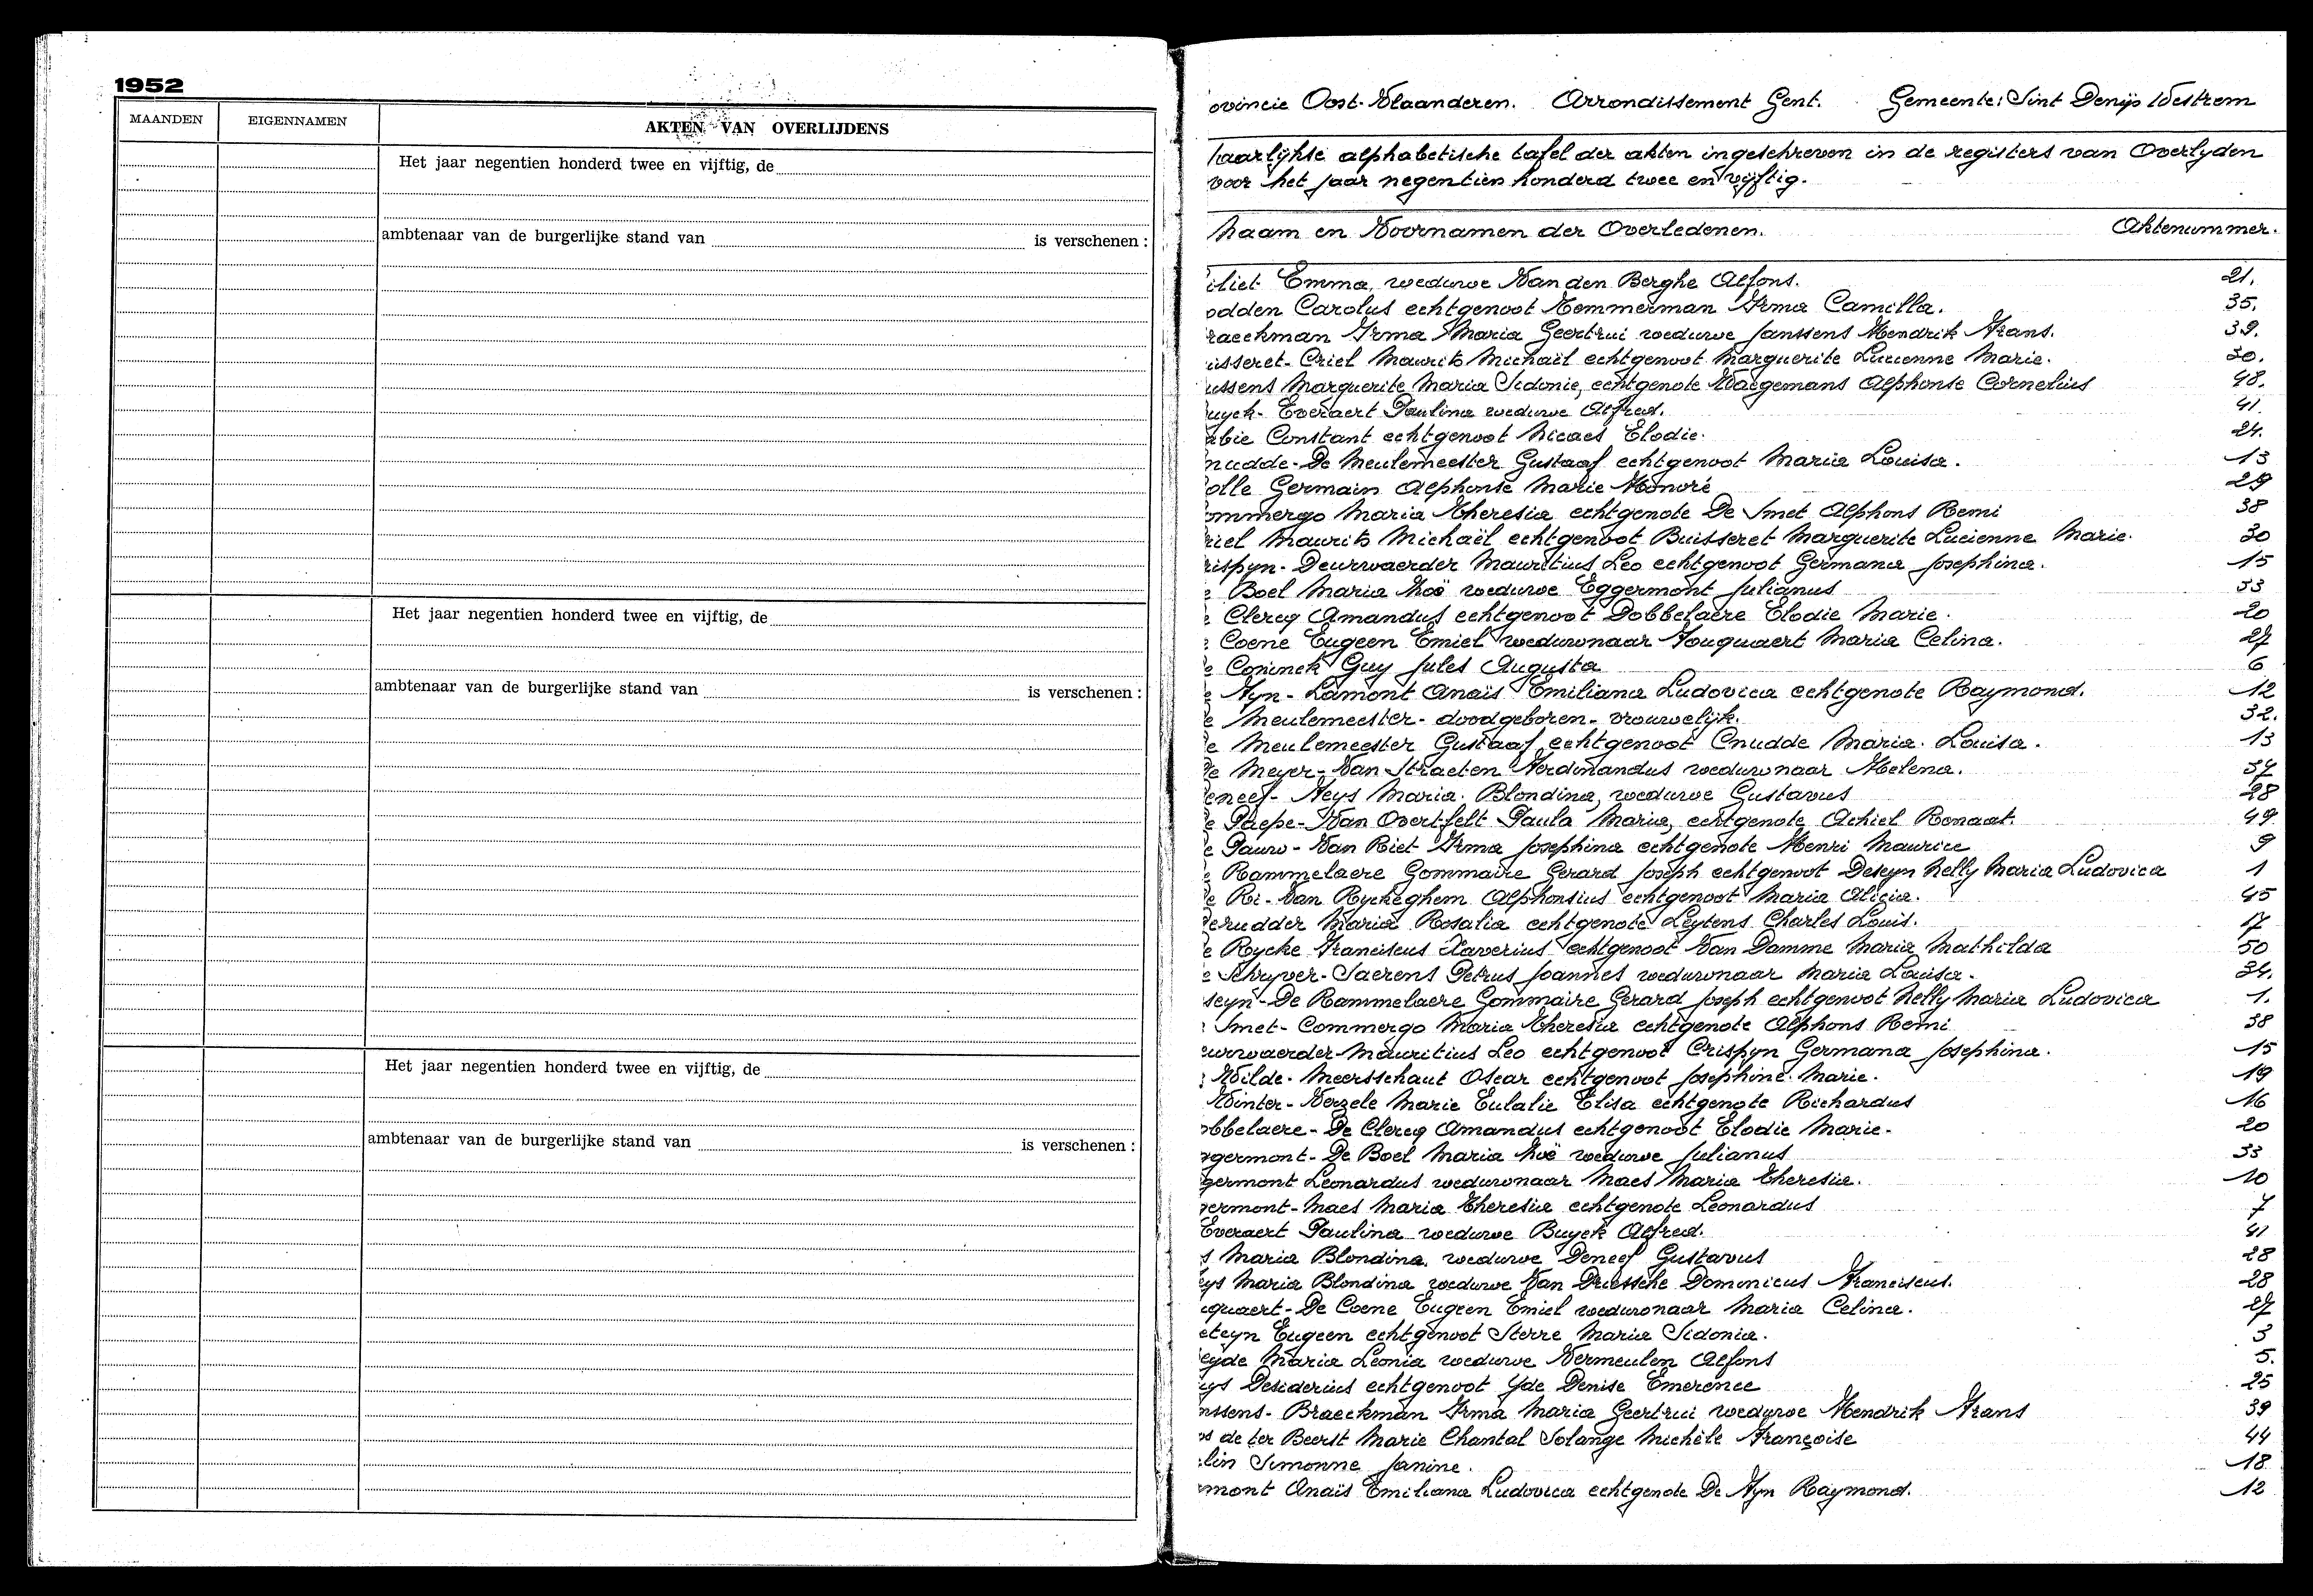 1952
MAANDEN EIGENNAMEN AKTEN VAN OVERLIJDENS
Het jaar negentien honderd twee en vijftig, de
ambtenaar van de burgerlijke stand van is verschenen :
Het jaar negentien honderd twee en vijftig, de
ambtenaar van de burgerlijke stand van is verschenen :
Het jaar negentien honderd twee en vijftig, de
ambtenaar van de burgerlijke stand van is verschenen :
ovincie Oost-Vlaanderen. Arrondissement Gent. Gemeente: Sint Denijs Westrem
Jaarlijkse alphabetische tafel der akten ingeschreven in de registers van Overlyden
voor het jaar negentien honderd twee en vijftig.
Naam en Voornamen der Overledenen. Aktenummer.
iliet Emma, weduwe Van den Berghe Alfons. 21.
odden Carolus echtgenoot Temmerman Irma Camilla. 35.
raeckman Irma Maria Geertrui weduwe Janssens Hendrik Frans. 39.
uisseret-Criel Maurits Michaël echtgenoot Marguerite Lucienne Marie. 30.
ussens Marguerite Maria Sidonie, echtgenote Waegemans Alphonse Cornelius 48.
uyck-Everaert Paulina weduwe Alfred. 41.
abie Constant echtgenoot Nicaes Elodie. 24.
nudde-De Meulemeester Gustaaf echtgenoot Maria Louisa. 13
olle Germain Alphonse Marie Honoré 29
ommergo Maria Theresia echtgenote De Smet Alphons Remi 38
riel Maurits Michaël echtgenoot Buisseret Marguerite Lucienne Marie. 30
rispyn-Deurwaerder Mauritius Leo echtgenoot Germana Josephina. 15
e Boel Maria Zoë weduwe Eggermont Julianus 33
e Clercq Amandus echtgenoot Dobbelaere Elodie Marie. 20
e Coene Eugeen Emiel weduwnaar Fouquaert Maria Celina. 27
e Coninck Guy Jules Augusta 6
e Fyn-Lamont Anaïs Emiliana Ludovica echtgenote Raymond. 12
e Meulemeester-doodgeboren-vrouwelijk. 32.
e Meulemeester Gustaaf echtgenoot Cnudde Maria. Louisa. 13
De Meyer-Van Straeten Ferdinandus weduwnaar Helena. 37
eneef-Feys Maria. Blondina, weduwe Gustavus 28
e Paepe-Van Overtfelt Paula Maria, echtgenote Achiel Ronaat. 49
e Pauw-Van Riet Irma Josephina echtgenote Henri Maurice 9
e Rammelaere Gommaire Gerard Joseph echtgenoot Deseyn Nelly Maria Ludovica 1
De Ri-Van Ryckeghem Alphonsius echtgenoot Maria Alicia. 45
Derudder Maria Rosalia echtgenote Leytens Charles Louis. 17
e Rycke Franciscus Xaverius echtgenoot Van Damme Maria Mathilda 50
e Schryver-Saerens Petrus Joannes weduwnaar Maria Louisa. 34.
seyn-De Rammelaere Gommaire Gerard Joseph echtgenoot Nelly Maria Ludovica 1.
Smet-Commergo Maria Theresia echtgenote Alphons Remi 38
eurwaerder-Mauritius Leo echtgenoot Crispyn Germana Josephina. 15
Wilde-Meersschaut Oscar echtgenoot Josephine Marie. 19
Winter-Verzele Marie Eulalie Elisa echtgenote Richardus 16
obbelaere-De Clercq Amandus echtgenoot Elodie Marie. 20
ggermont-De Boel Maria Zoë weduwe Julianus 33
germont Leonardus weduwnaar Maes Maria Theresia. 10
germont-Maes Maria Theresia echtgenote Leonardus 7
Everaert Paulina weduwe Buyck Alfred. 41
s Maria Blondina, weduwe Deneef Gustavus 28
eys Maria Blondina weduwe Van Driessche Dominicus Franciscus. 28
cquaert-De Coene Eugeen Emiel weduwnaar Maria Celina. 27
eteyn Eugeen echtgenoot Sterre Maria Sidonia. 3
eyde Maria Leonia weduwe Vermeulen Alfons 5.
uys Desiderius echtgenoot Yde Denise Emerence 25
nssens-Braeckman Irma Maria Geertrui weduwe Hendrik Frans 39
os de ter Beerst Marie Chantal Solange Michèle Françoise 44
lin Simonne Janine. 18
mont Anaïs Emiliana Ludovica echtgenote De Fyn Raymond. 12